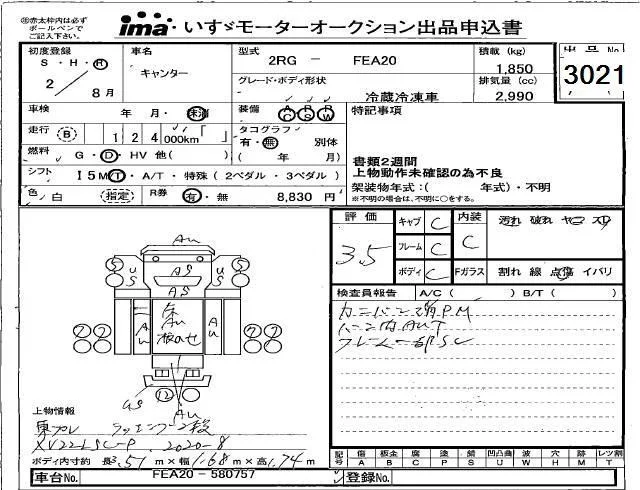 ㊟赤太枠内は必ず
ボールペンで
ご記入下さい。
ima いすゞモーターオークション出品申込書
初度登録 S・H・R
2 / 8月
車名
キャンター
型式
2RG - FEA20
グレード・ボディ形状
冷蔵冷凍車
積載 (kg)
1,850
排気量 (cc)
2,990
出品No
3021
車検 年 月・検・未消
装備 AC PS PW
特記事項
走行 B 124,000km「 」
タコグラフ 有・無 別体
( 年 月)
燃料 G・D・HV 他( )
シフト I5 M T・A/T・特殊 (2ペダル・3ペダル)
書類2週間
上物動作未確認の為不良
架装物年式:( 年式)・不明
※不明の場合は、不明に○をする。
色 白 (指定)
R券 有・無 8,830 円
評価
3.5
キャブ C
フレーム C
ボディ C
内装
C
Fガラス
汚れ 破れ ヤコゲ スリ
割れ 線 点傷 イバリ
検査員報告 A/C( ) B/T( )
Au
S S
US AS US
AS
Au
Au Au
2 2 2 2
US 12
Au
上物情報
東プレ ラッシング2段
XV22LSC-P 2020-8
ボディ内寸約 長3.51m×幅1.68m×高1.74m
記号 傷 板金 腐 塗 錆 凹凸曲 波 穴 跡 レツ割
A B C P S U W H M T
車台No. FEA20 - 580757
登録No.